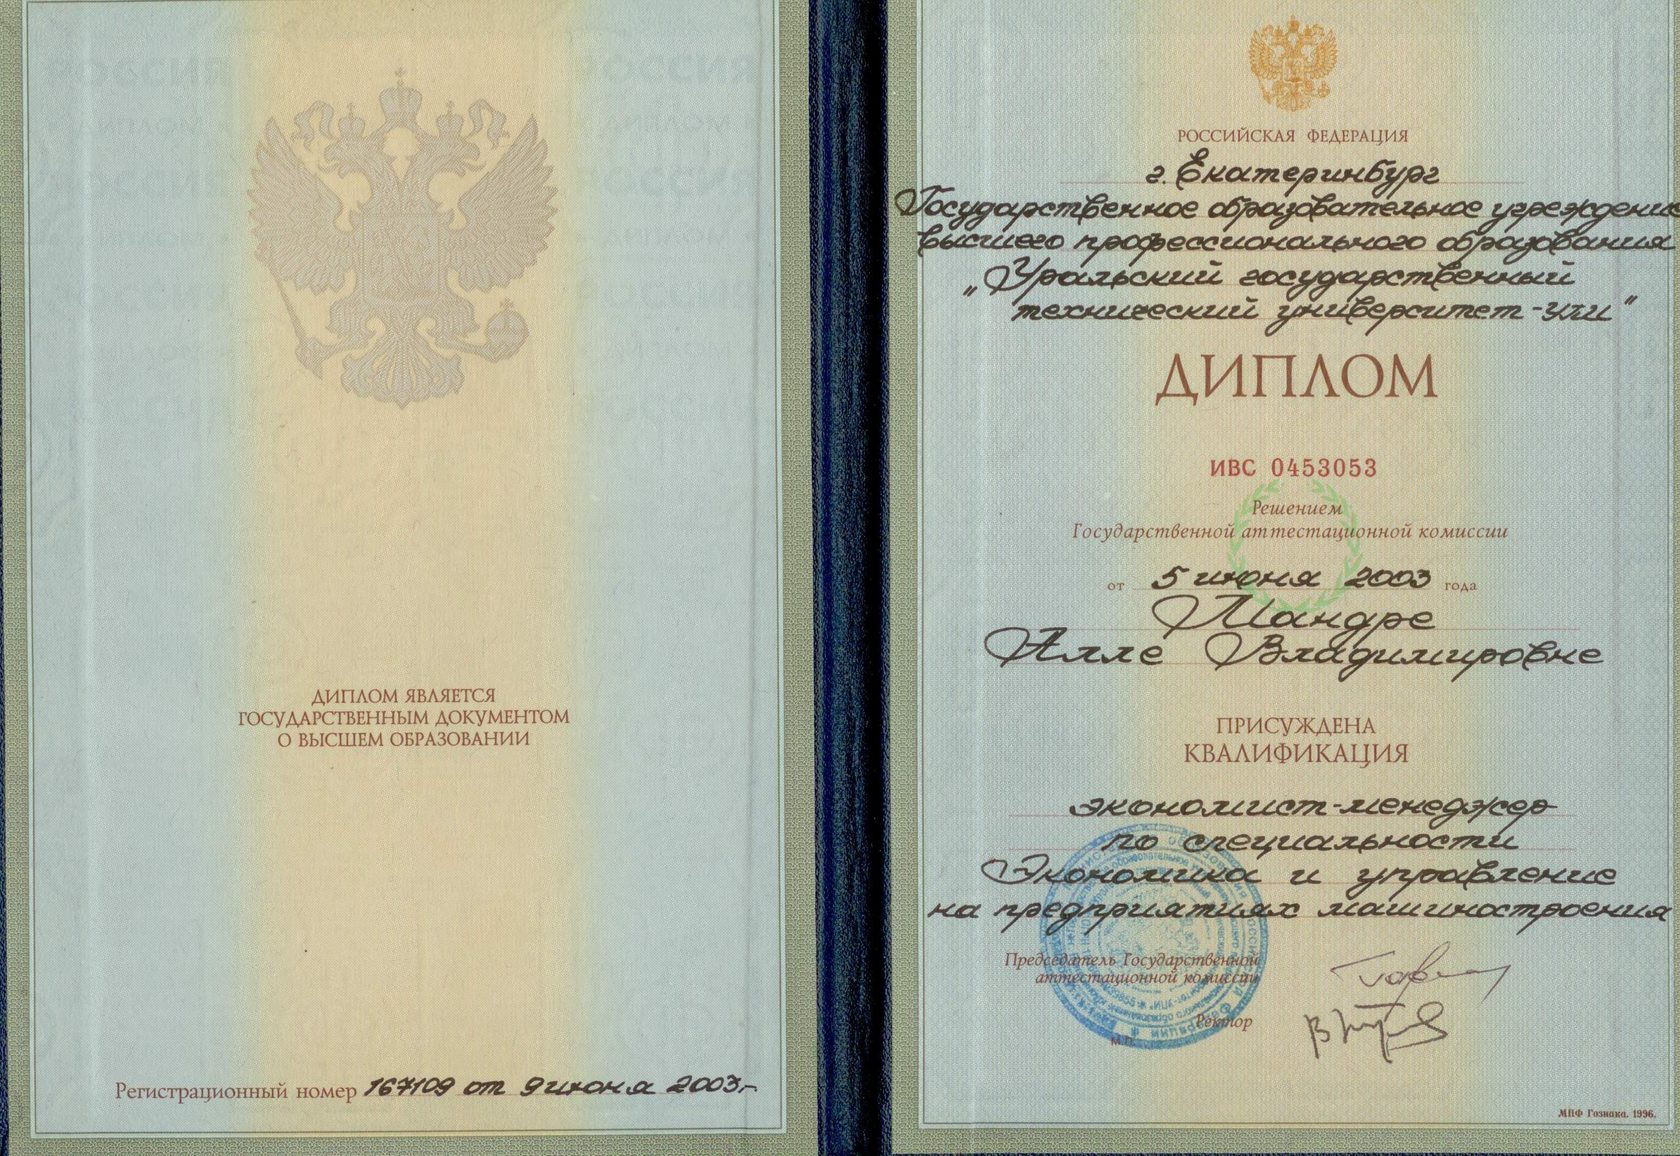 ДИПЛОМ ЯВЛЯЕТСЯ
ГОСУДАРСТВЕННЫМ ДОКУМЕНТОМ
О ВЫСШЕМ ОБРАЗОВАНИИ
Регистрационный номер 167109 от 9 июня 2003г.
РОССИЙСКАЯ ФЕДЕРАЦИЯ
г. Екатеринбург
Государственное образовательное учреждение
высшего профессионального образования
„Уральский государственный
технический университет-УПИ"
ДИПЛОМ
ИВС 0453053
Решением
Государственной аттестационной комиссии
от 5 июня 2003 года
Мандре
Алле Владимировне
ПРИСУЖДЕНА
КВАЛИФИКАЦИЯ
экономист-менеджер
по специальности
Экономика и управление
на предприятиях машиностроения
Председатель Государственной
аттестационной комиссии
Ректор
М.П.
МПФ Гознака. 1996.